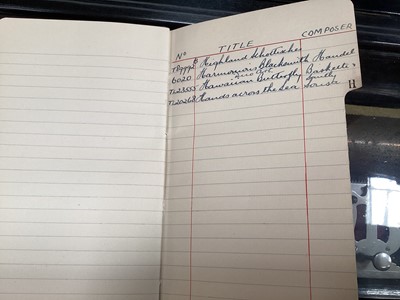 Nº TITLE COMPOSER
Highland Schottisches
6020 Harmonious Blacksmith Handel
Hawaiian Butterfly Baskette &
Santly
T20268 Hands across the Sea Sousa
H